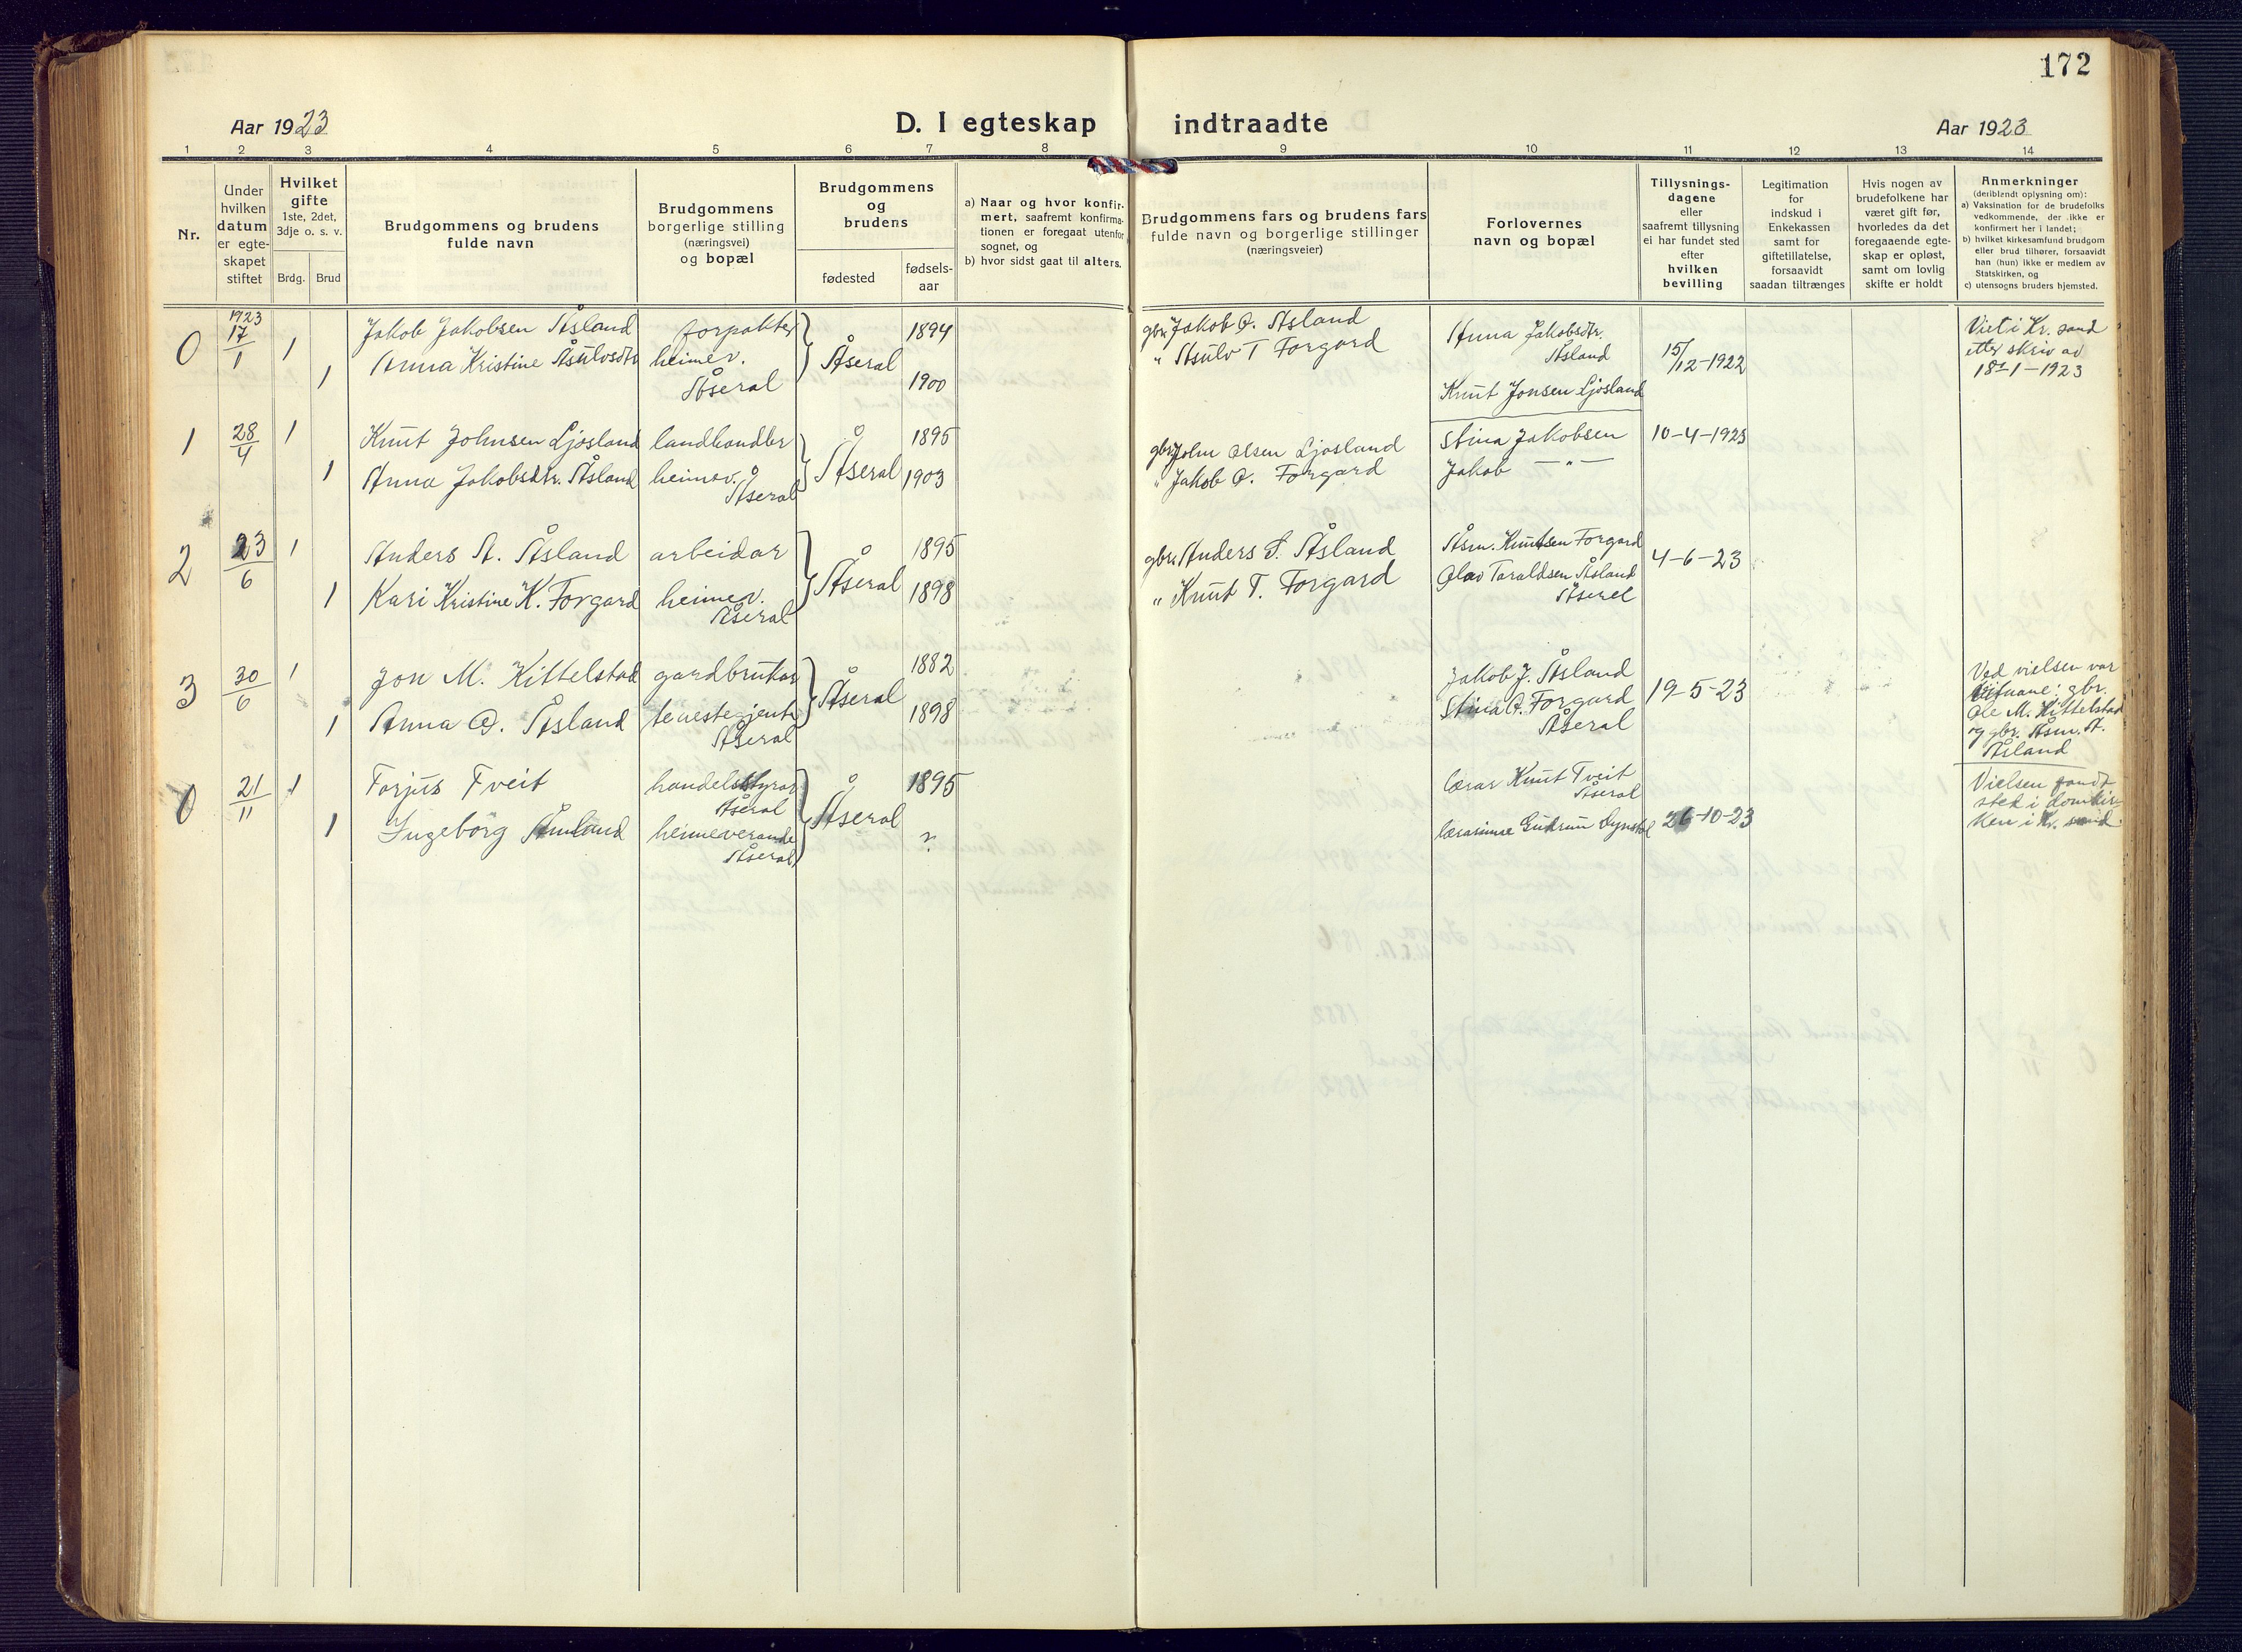 172
Aar 1923
D. I egteskap indtraadte
Aar 1923
1 2 3 4 5 6 7 8 9 10 11 12 13 14
Nr.
Under
hvilken
datum
er egte-
skapet
stiftet
Hvilket
gifte
1ste, 2det,
3dje o. s. v.
Brdg. Brud
Brudgommens og brudens
fulde navn
Brudgommens
borgerlige stilling
(næringsvei)
og bopæl
Brudgommens
og
brudens
fødested
fødsels-
aar
a) Naar og hvor konfir-
mert, saafremt konfirma-
tionen er foregaat utenfor
sognet, og
b) hvor sidst gaat til alters.
Brudgommens fars og brudens fars
fulde navn og borgerlige stillinger
(næringsveier)
Forlovernes
navn og bopæl
Tillysnings-
dagene
eller
saafremt tillysning
ei har fundet sted
efter
hvilken
bevilling
Legitimation
for
indskud i
Enkekassen
samt for
giftetillatelse,
forsaavidt
saadan tiltrænges
Hvis nogen av
brudefolkene har
været gift før,
hvorledes da det
foregaaende egte-
skap er opløst,
samt om lovlig
skifte er holdt
Anmerkninger
(deriblandt oplysning om):
a) Vaksination for de brudefolks
vedkommende, der ikke er
konfirmert her i landet;
b) hvilket kirkesamfund brudgom
eller brud tilhører, forsaavidt
han (hun) ikke er medlem av
Statskirken, og
c) utensogns bruders hjemsted.
0
1923
17/1
1
1
Jakob Jakobsen Åsland
Anna Kristine Åsulvsdtr
forpakter
heimev.
Åseral
Åseral
1894
1900
gbr. Jakob O. Åsland
" Åsulv T Forgard
Anna Jakobsdtr.
Åsland
Knut Jonsen Ljosland
15/12-1922
Viet i Kr. sand
etter skriv av
18-1-1923
1
28/4
1
1
Knut Johnsen Ljosland
Anna Jakobsdtr. Åsland
landhandler
heimev.
Åseral
Åseral
1895
1903
gbr. John Olsen Ljosland
" Jakob O. Forgard
Stina Jakobsen
Jakob — " —
10-4-1923
2
23/6
1
1
Anders A. Åsland
Kari Kristine K. Forgard
arbeidar
heimev.
Åseral
Åseral
1895
1898
gbr. Anders S. Åsland
" Knut T. Forgard
Åsm. Knutsen Forgard
Olav Taraldsen Åsland
Åseral
4-6-23
3
30/6
1
1
Jon M. Kittelstad
Anna O. Åsland
gardbrukar
tenestejente
Åseral
Åseral
1882
1898
Jakob J. Åsland
Stina A. Forgard
Åseral
19-5-23
Ved vielsen var
gbr.
Ole M. Kittelstad
og gbr. Åsm. A.
Åsland
0
21/11
1
1
Torjus Tveit
Ingeborg Åmland
handelsstyrar
Åseral
heimeverande
Åseral
Åseral
1895
?
lærar Knut Tveit
Åseral
lærarinne Gudrun
26-10-23
Vielsen fandt
sted i domkir-
ken i Kr. sand.